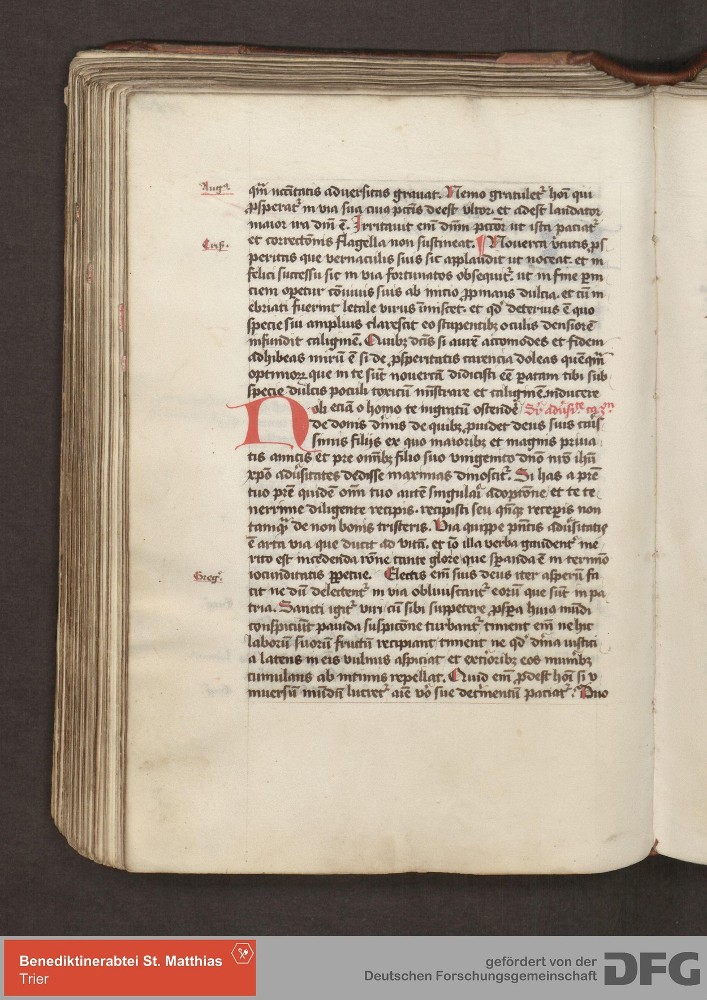 Aug9
qm̄ utilitatis aduersitas grauat. Nemo gratulet᷑ hōi qui
ꝓsperat᷑ in via sua cuiꝰ pctīs deest vltor. et adest laudator
maior ira dnī ē. Irritauit em̄ dnm̄ pctōr ut ista paciat᷑
Criſ.
et correctōnis flagella non sustineat. Nouerca v̓tutis ꝓs
peritas que vernaculis suis sic applaudit ut noceat. et in
felici successu sic in via fortunatos obsequit᷑. ut in fine ꝑni
ciem operet᷑ cōuiuis suis ab inicio ꝓpinans dulcia. et cū in
ebriati fuerint letale virus īmiscet. et qd̓ deterius ē quo
specie sui amplius clarescit eo stupentibꝫ oculis densiorē
infundit caliginē. Quibꝫ dc̄is si aurē accomodes et fidem
adhibeas mirū ē si de ꝓsperitatis carencia doleas quēqm̄
optimoꝝ que in te sūt nouercā didicisti eē paratam tibi sub
specie dulcis poculi toxicū mīstrare et caliginē inducere
Noli eciā o homo te ingratū ostendē
de donis dīnis de quibꝫ ꝓuidet deus suis cīss
simis filijs ex quo maioribꝫ et magnis priua
tis amicis et pre omībꝫ filio suo vnigenito dnō nrō ihū
xp̄o adu̓sitates dedisse maximas dinoscit᷑. Si has a prē
tuo prē quidē omī tuo autē singulari adoptōne et te te
nerrime diligente recipis. recipisti seu qn̄qꝫ receꝑis non
tanqꝫ de non bonis tristeris. Via quippe pn̄tis adu̓sitatis
ē arta via que ducit ad vitā. et iō illa verba gaudent᷑ me
rito est incedenda rōne tante glorie que sꝑanda ē in termīo
Greg᷑.
iocunditatis ꝑpetue. Electis em̄ suis deus iter asperū fa
cit ne dū delectent᷑ in via obliuiscant᷑ eorū que sūt in pa
tria. Sancti igit᷑ viri cū sibi suppetere ꝓspa huiꝰ mūdi
conspiciūt pauida suspicōne turbant᷑ timent em̄ ne hic
laborū suorū fructū recipiant timent ne qd̓ diīna iusticī
a latens in eis vulnus aspiciat et exterioribꝫ eos munībꝫ
cumulans ab intimis repellat. Quid em̄ ꝓdest hōi si v
niuersū mūdū lucret᷑ aīe vō sue detrimentū paciat᷑. Duo
Benediktinerabtei St. Matthias
Trier
gefördert von der
Deutschen Forschungsgemeinschaft
DFG